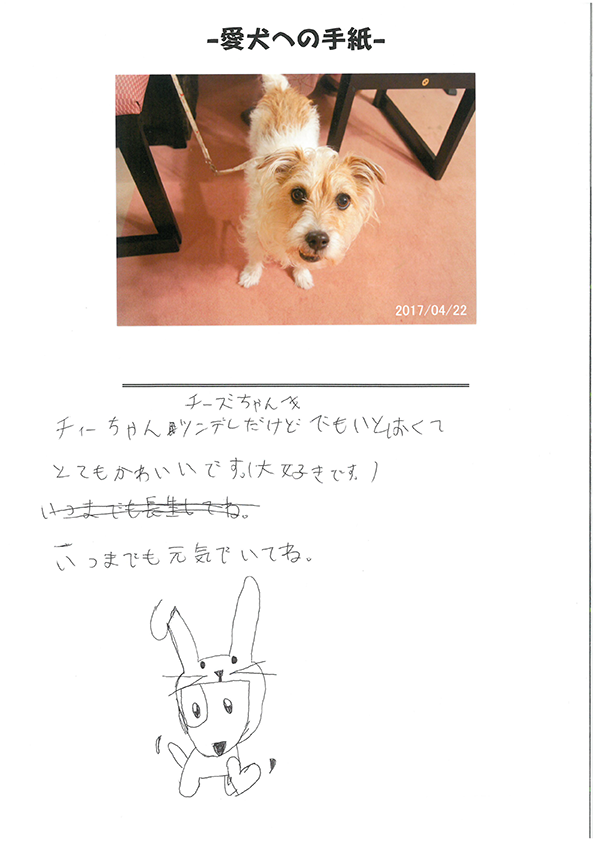 -愛犬への手紙-
2017/04/22
チーズちゃんへ
チィーちゃんツンデレだけど でもいとしくて
とてもかわいいです。(大好きです。)
いつまでも長生してね。
いつまでも元気でいてね。